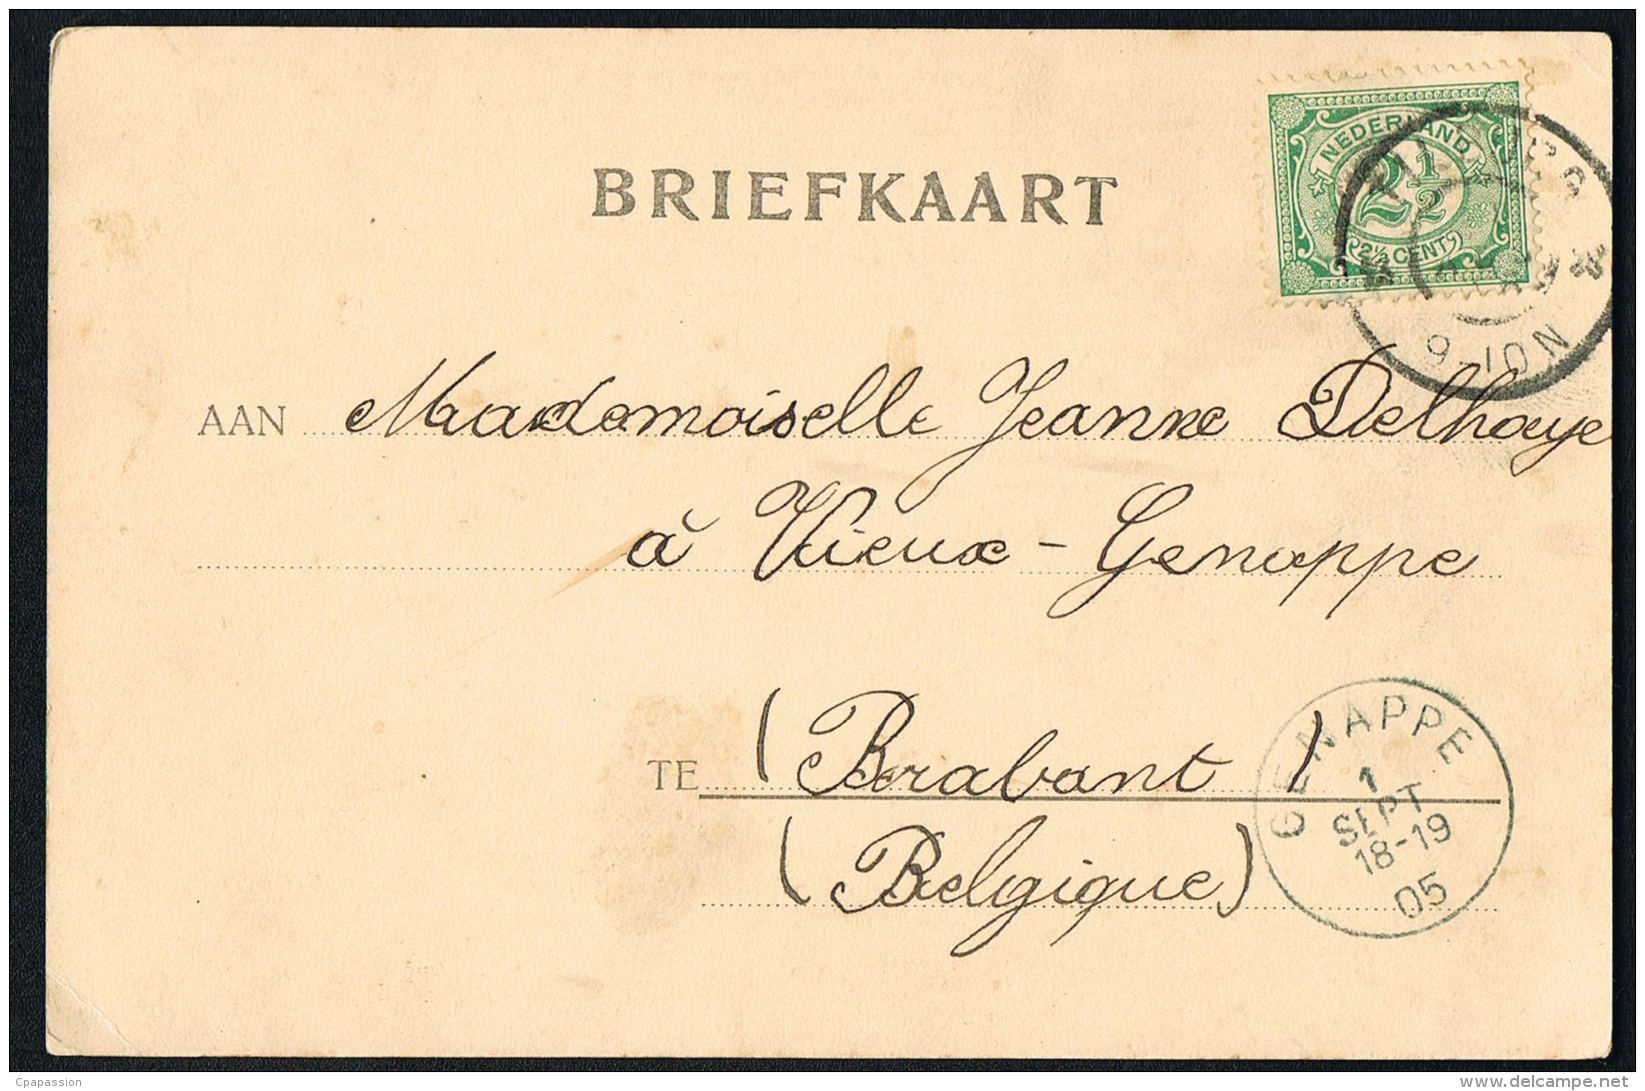 BRIEFKAART
NEDERLAND
2 1/2
2½ CENT
9-10N
AAN Mademoiselle Jeanne Delhaye
à Vieux-Genappe
TE (Brabant)
(Belgique)
GENAPPE
1
SEPT
18-19
05
Cpapassion
www.delcampe.net